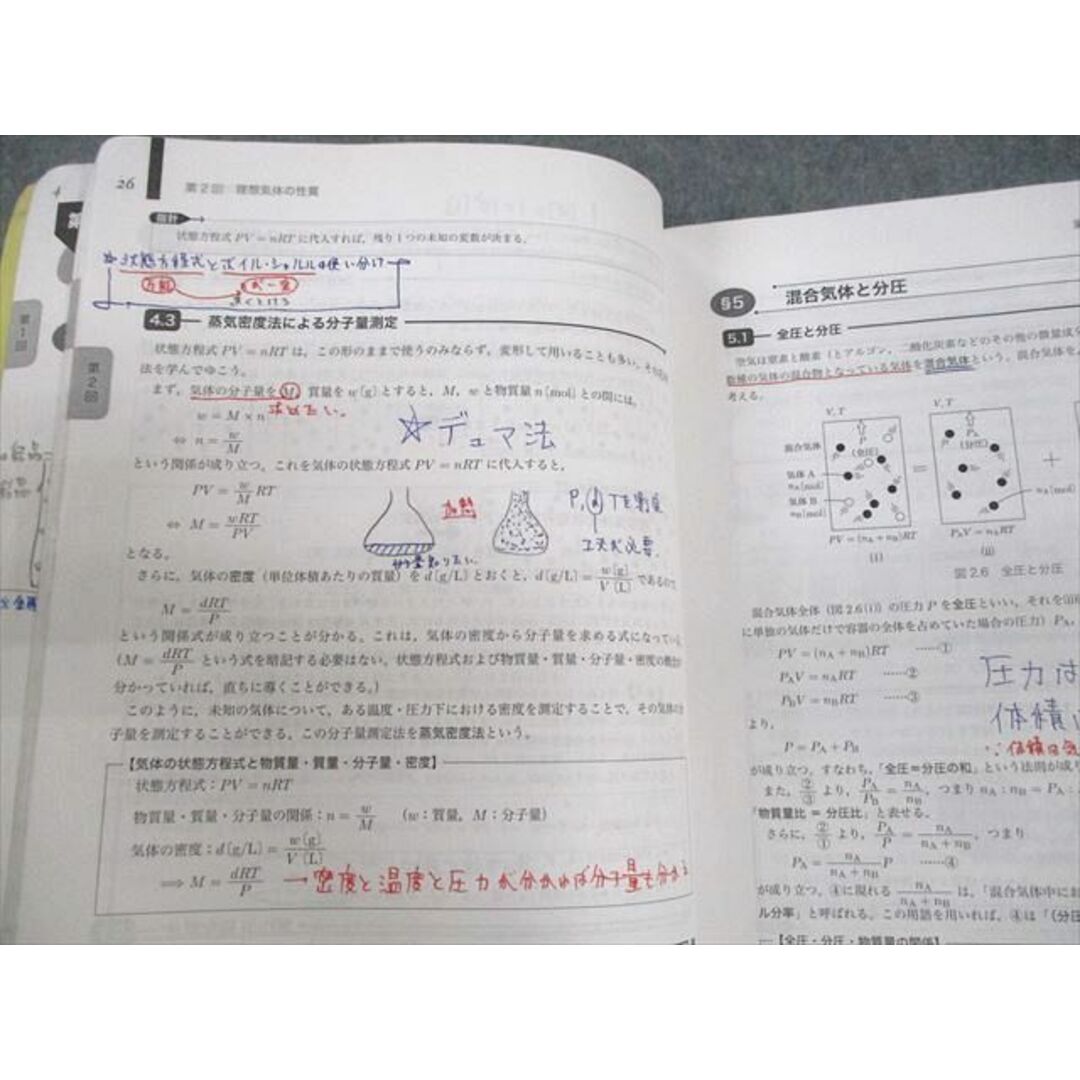 26
第2回 理想気体の性質
指針
状態方程式 PV = nRT に代入すれば，残り1つの未知の変数が決まる．
状態方程式とボイル・シャルルの使い分け
万能
4.3 蒸気密度法による分子量測定
状態方程式 PV = nRT は，この形のままで使うのみならず，変形して用いることも多い．その
法を学んでゆこう．
まず，気体の分子量を M，質量を w〔g〕とすると，M，w と物質量 n〔mol〕との間には，
求めたい。
w = M × n
⇔ n = w/M
☆デュマ法
という関係が成り立つ．これを気体の状態方程式 PV = nRT に代入すると，
PV = w/M RT
⇔ M = wRT/PV
加熱
となる．
さらに，気体の密度（単位体積あたりの質量）を d〔g/L〕とおくと，d〔g/L〕= w〔g〕/V〔L〕であるので
M = dRT/P
という関係式が成り立つことが分かる．これは，気体の密度から分子量を求める式になっている
（M = dRT/P という式を暗記する必要はない．状態方程式および物質量・質量・分子量・密度の
分かっていれば，直ちに導くことができる．）
このように，未知の気体について，ある温度・圧力下における密度を測定することで，その気体の
子量を測定することができる．この分子量測定法を蒸気密度法という．
【気体の状態方程式と物質量・質量・分子量・密度】
状態方程式：PV = nRT
物質量・質量・分子量の関係：n = w/M （w：質量，M：分子量）
気体の密度：d〔g/L〕= w〔g〕/V〔L〕
⟹ M = dRT/P
→密度と温度と圧力が分かれば分子量も分かる
第1回
第2回
§5 混合気体と分圧
5.1 全圧と分圧
空気は窒素と酸素（とアルゴン，二酸化炭素などのその他の微量成分
数種の気体の混合物となっている気体を混合気体という．混合気体を
考える．
V, T
P
（全圧）
混合気体
気体 A
nA〔mol〕
気体 B
nB〔mol〕
PV = (nA + nB)RT
(i)
=
V, T
PA
（分圧）
nA〔mol〕
PAV = nART
(ii)
+
図2.6 全圧と分圧
混合気体全体（図2.6(i)）の圧力 P を全圧といい，それを
に単独の気体だけで容器の全体を占めていた場合の圧力）PA，
PV = (nA + nB)RT ……①
PAV = nART ……②
PBV = nBRT ……③
圧力は
体積
より，
P = PA + PB
が成り立つ．すなわち，「全圧＝分圧の和」という法則が成り
また，②/③ より，PA/PB = nA/nB，つまり nA : nB = PA :
「物質量比 = 分圧比」と表せる．
さらに，②/① より，PA/P = nA/(nA + nB)，つまり
PA = nA/(nA + nB) P ……④
が成り立つ．④に現れる nA/(nA + nB) は，「混合気体中にお
ル分率」と呼ばれる．この用語を用いれば，④は「（分圧
【全圧・分圧・物質量の関係】